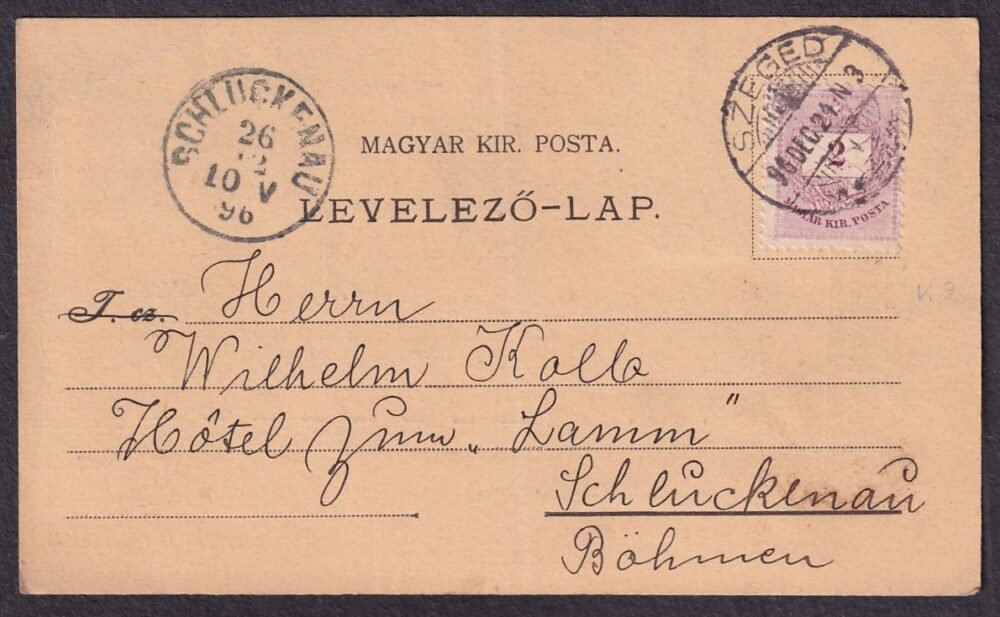 SCHLUCKENAU
26
12
10 V
96
SZEGED
96 DEC. 24. N 3
2
MAGYAR KIR. POSTA
MAGYAR KIR. POSTA.
LEVELEZŐ-LAP.
T. cz. Herrn
Wilhelm Kolb
Hôtel zum „Lamm"
Schluckenau
Böhmen
K 2